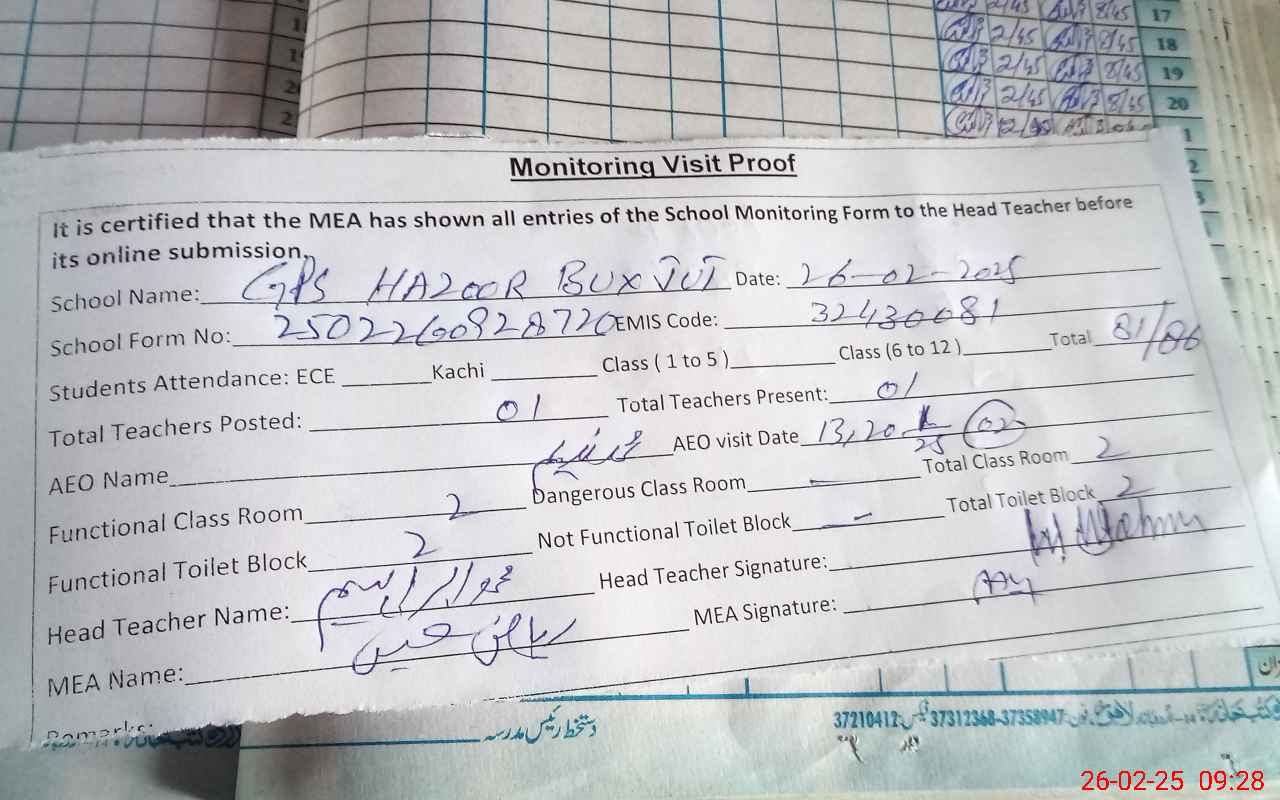 2/45 8/45 17
2/45 8/45 18
2/45 8/45 19
2/45 8/45 20
Monitoring Visit Proof
It is certified that the MEA has shown all entries of the School Monitoring Form to the Head Teacher before
its online submission.
School Name: GPS HAZOOR BUX JUI Date: 26-02-2025
School Form No: 25022600928720 EMIS Code: 32430081
Students Attendance: ECE Kachi Class ( 1 to 5 ) Class (6 to 12 ) Total 81/86
Total Teachers Posted: 01 Total Teachers Present: 01
AEO Name AEO visit Date 13,20 25 02
Functional Class Room 2 Dangerous Class Room — Total Class Room 2
Functional Toilet Block 2 Not Functional Toilet Block — Total Toilet Block 2
Head Teacher Name: محمد ابراہیم Head Teacher Signature:
MEA Name: MEA Signature:
Remarks:
دستخط رئیس مدرسہ
37210412 37312368-37358947
26-02-25 09:28